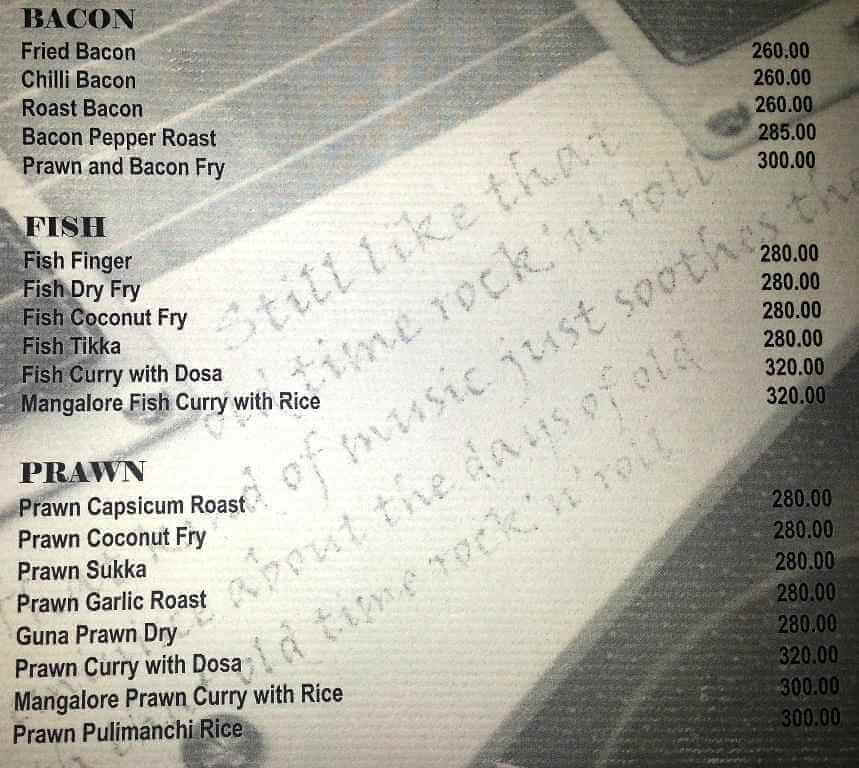 BACON
Fried Bacon 260.00
Chilli Bacon 260.00
Roast Bacon 260.00
Bacon Pepper Roast 285.00
Prawn and Bacon Fry 300.00
FISH
Fish Finger 280.00
Fish Dry Fry 280.00
Fish Coconut Fry 280.00
Fish Tikka 280.00
Fish Curry with Dosa 320.00
Mangalore Fish Curry with Rice 320.00
PRAWN
Prawn Capsicum Roast 280.00
Prawn Coconut Fry 280.00
Prawn Sukka 280.00
Prawn Garlic Roast 280.00
Guna Prawn Dry 280.00
Prawn Curry with Dosa 320.00
Mangalore Prawn Curry with Rice 300.00
Prawn Pulimanchi Rice 300.00
Still like that
old time rock'n'roll
kind of music just soothes the
about the days of old
old time rock'n'roll